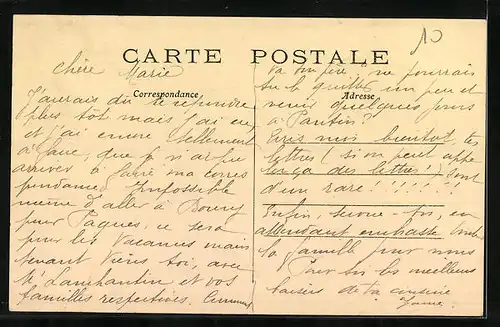 10
CARTE POSTALE
Chère Marie
Correspondance
J'aurais dû te répondre
plus tôt mais j'ai eu
et j'ai encore tellement
à faire, que je n'ai pu
arriver à faire ma corres
pendance. Impossible
même d'aller à Bourg
pour Pâques, ce sera
pour les Vacances main
tenant Viens toi, avec
et vos
familles respectives. Comment
Va ton père, ne pourrais
Adresse
tu le quitter un peu et
venir quelques jours
à Pantin?
Ecris moi bientôt, tes
lettres (si on peut appe
ler ça des lettres!) sont
d'un rare!!!!!!!
Enfin, secoue-toi, en
attendant embrasse toute
la famille pour nous
sur toi les meilleurs
baisers de ta cousine